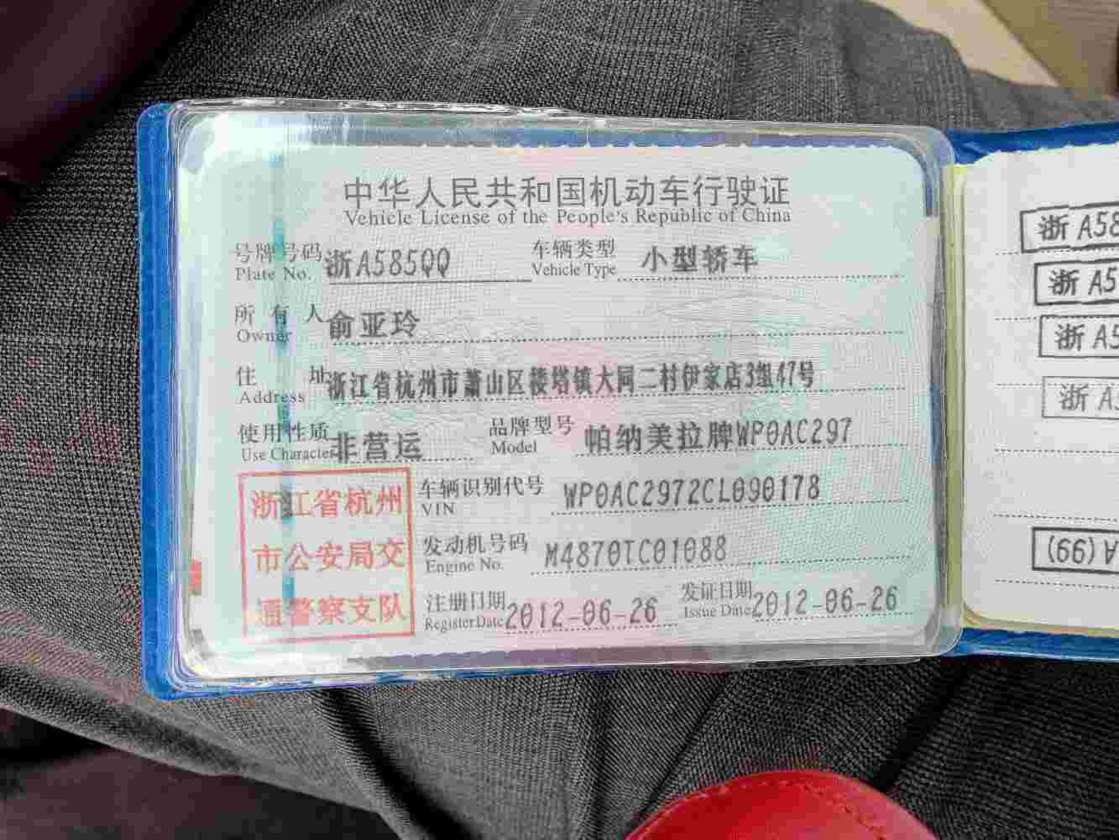 中华人民共和国机动车行驶证
Vehicle License of the People's Republic of China
号牌号码 浙A585QQ 车辆类型 小型轿车
Plate No. Vehicle Type
所有人 俞亚玲
Owner
住址 浙江省杭州市萧山区楼塔镇大同二村伊家店3组47号
Address
使用性质 非营运 品牌型号 帕纳美拉牌WP0AC297
Use Character Model
浙江省杭州
市公安局交
通警察支队
车辆识别代号 WP0AC2972CL090178
VIN
发动机号码 M4870TC01088
Engine No.
注册日期 2012-06-26 发证日期 2012-06-26
Register Date Issue Date
浙A58
浙A5
浙A5
浙A
(66)